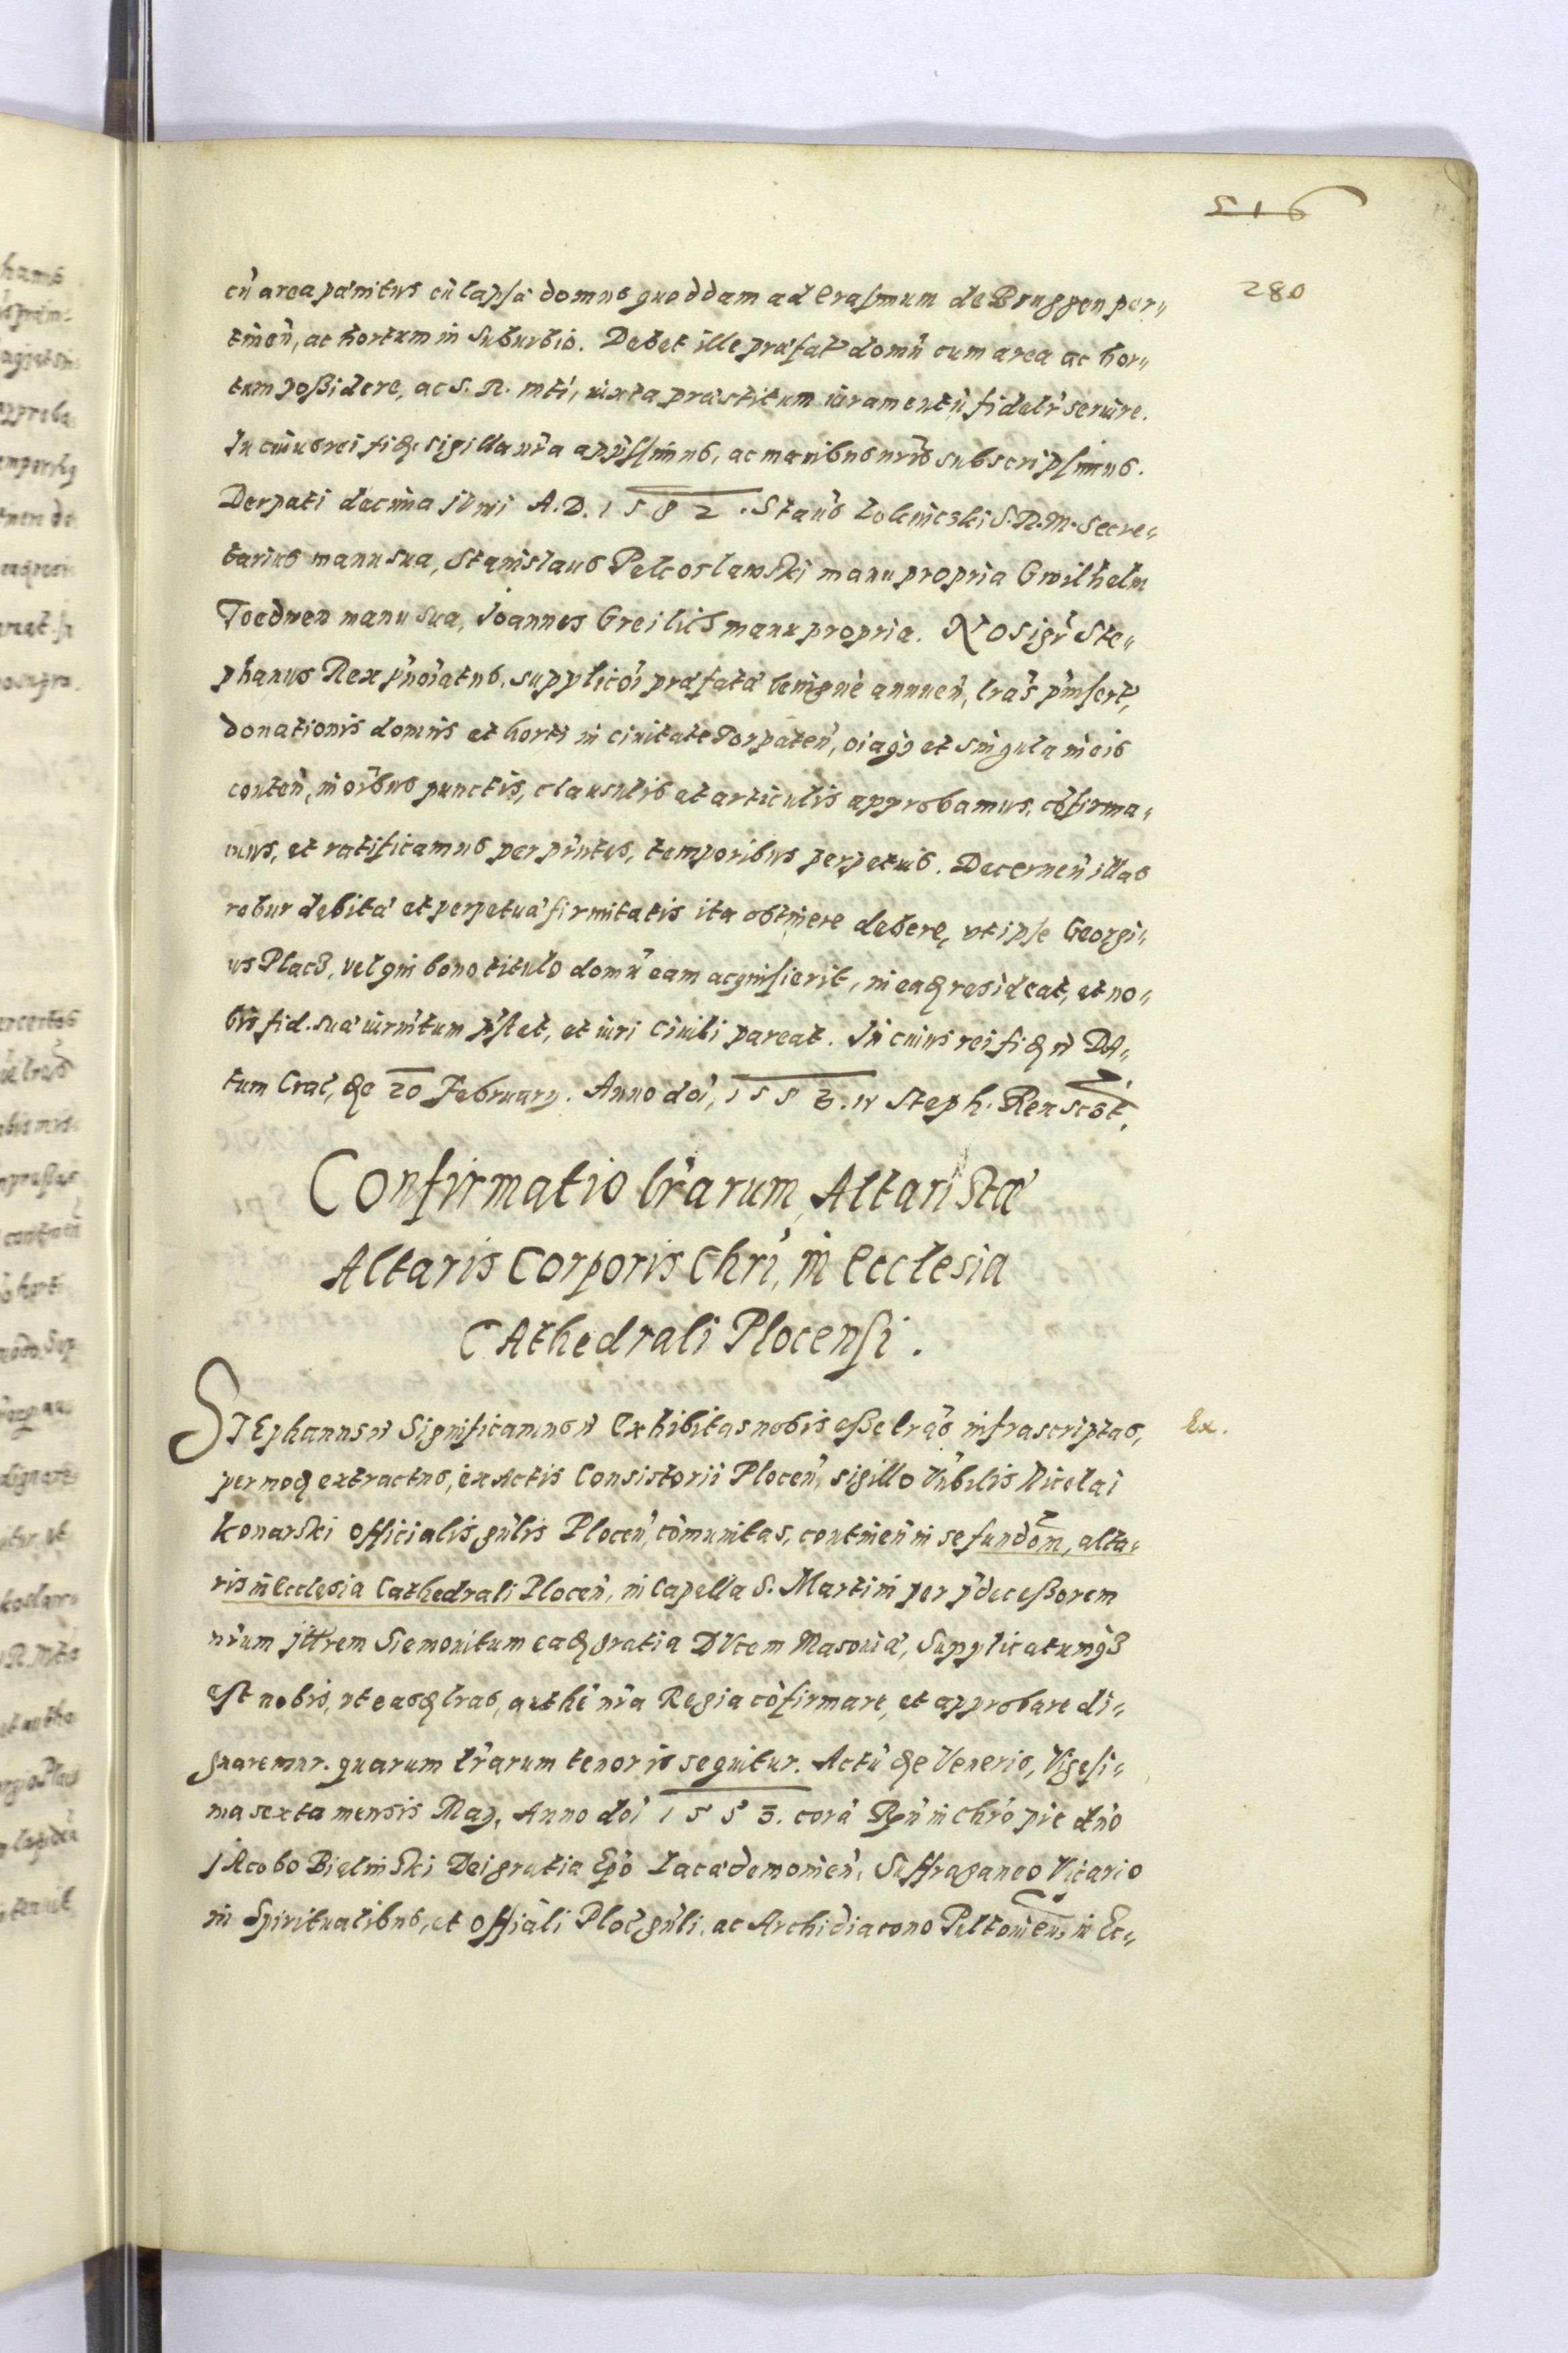 516
280
cū area pānitus cūlapsa domus quoddam ad Erasmum de Bruggen per„
tinen̄, ac hortum in suburbio. Debet ille præfat̃ domū cum area ac hor„
tum poßidere, ac S. R. Mti, iuxta præstitum iuramentū fidelr̃ seruire.
In cuius rei fidẽ sigilla nr̃a appũssimus, ac manibus nr̃is subscripsimus.
Derpati decima Juni A. D. 1582. Staũs Zolcinski S. R. M. Secre„
tarius manu sua, Stanislaus Pelcoslawski manu propria Gwilhelm
Toedwen manu sua, Joannes Greilich manu propria. Nos igr̃ Ste„
phanus Rex p̃noĩatus, supplicõi præfatæ benignè annuen̄, lr̃as p̃insert,
donationis domus et horti in ciuitate Torpaten̄, oĩaq₃ et singula in eis
conten̄, in oĩbus punctis, clausulis et articulis approbamus, cõfirma„
mus, et ratificamus per p̃ntes, temporibus perpetuis. Decernen̄ illas
robur debitæ et perpetuæ firmitatis ita obtinere debere, vt ipse Georgi„
us Placz, vel qui bono titulo domū eam acquisierit, in eadẽ resideat, et no„
bis fid. suæ iurm̃tum p̃stet, et iuri ciuili pareat. In cuius rei fidẽ etc Da„
tum Crac̃, die 20 February. Anno doĩ, 1583. etc Steph. Rex scbt̃,
Confirmatio lr̃arum, Altaristæ
Altaris Corporis Chrĩ, in Ecclesia
Cathedrali Plocensi.
Ex.
Stephanus etc Significamus etc Exhibitas nobis eße lrãs infrascriptas,
per modũ extractus, ex Actis Consistorii Plocen̄, sigillo Vnbilis Nicolai
Konarski Officialis gñlis Plocen̄, cõmunitas, continen̄ in se fundom̃, alta„
ris in Ecclesia Cathedrali Plocen̄, in Capella S. Martini per p̃deceßorem
nr̃um Jllrem Siemouitum eadẽ gratia Ducem Masouiæ, Supplicatumq₃
est nobis, vt easdẽ lras, authẽ nr̃a Regia cõfirmare, et approbare di„
gnaremur. quarum lr̃arum tenor is sequitur. Actũ die Veneris, Vigesi„
ma sexta mensis May, Anno doĩ 1553. corã Rṽn in Chrõ pre dño
Jacobo Bielinski Dei gratia Epõ Lacædemonien̄, Suffraganeo Vicario
in Spiritualibus, et Offiãli Ploc̃ gñli, ac Archidiacono Pultouien̄, in Ec„